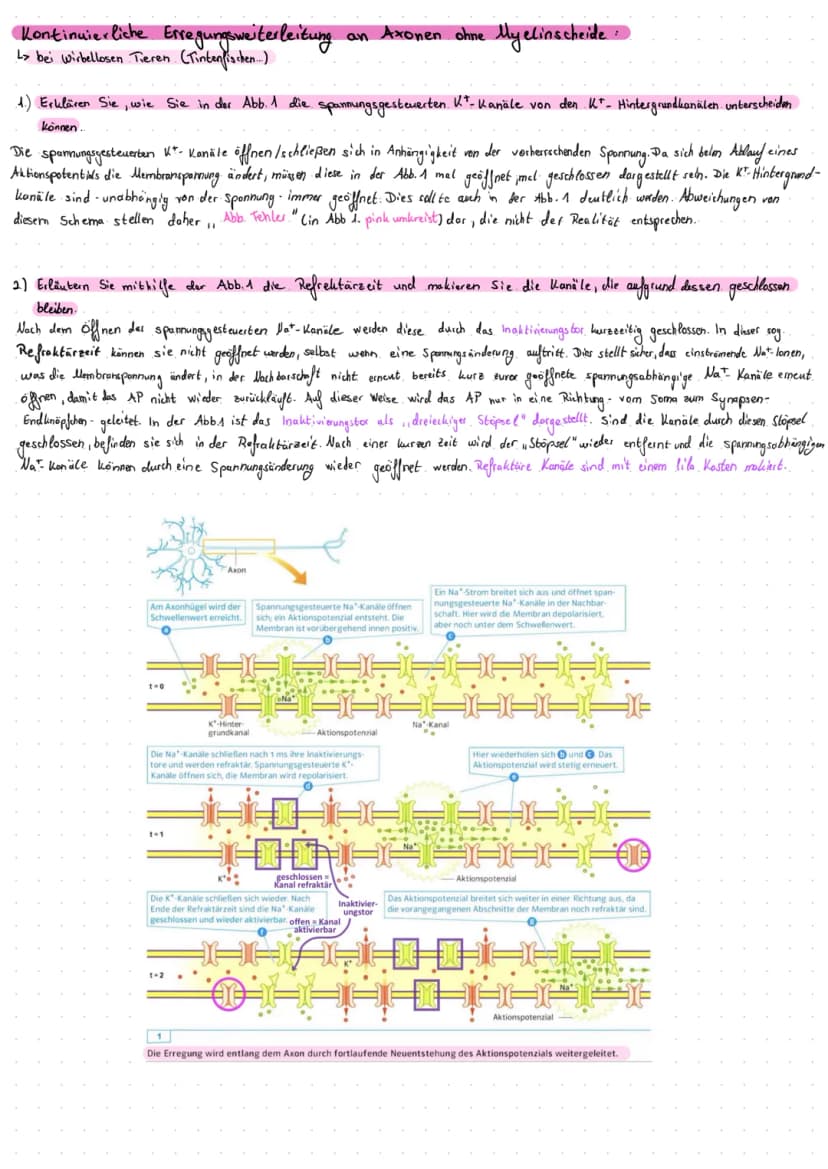 Kontinuierliche Erregungsweiterleitung an Axonen ohne Myelinscheide:
↳ bei wirbellosen Tieren (Tintenfischen...)
1.) Erklären Sie, wie Sie in der Abb. 1 die spannungsgesteuerten K⁺-Kanäle von den K⁺-Hintergrundkanälen unterscheiden
können.
Die spannungsgesteuerten K⁺-Kanäle öffnen/schließen sich in Anhängigkeit von der vorherrschenden Spannung. Da sich beim Ablauf eines
Aktionspotentials die Membranspannung ändert, müssen diese in der Abb. 1 mal geöffnet, mal geschlossen dargestellt sein. Die K⁺-Hintergrund-
kanäle sind - unabhängig von der Spannung - immer geöffnet. Dies sollte auch in der Abb. 1 deutlich werden. Abweichungen von
diesem Schema stellen daher „Abb. Fehler" (in Abb 1. pink umkreist) dar, die nicht der Realität entsprechen.
2.) Erläutern Sie mithilfe der Abb. 1 die Refraktärzeit und makieren Sie die Kanäle, die aufgrund dessen geschlossen
bleiben.
Nach dem Öffnen der spannungsgesteuerten Na⁺-Kanäle werden diese durch das Inaktivierungstor kurzzeitig geschlossen. In dieser sog.
Refraktärzeit können sie nicht geöffnet werden, selbst wenn eine Spannungsänderung auftritt. Dies stellt sicher, dass einströmende Na⁺-Ionen,
was die Membranspannung ändert, in der Nachbarschaft nicht erneut bereits kurz zuvor geöffnete spannungsabhängige Na⁺-Kanäle erneut
öffnen, damit das AP nicht wieder zurückläuft. Auf dieser Weise wird das AP nur in eine Richtung - vom Soma zum Synapsen-
Endknöpfchen - geleitet. In der Abb. 1 ist das Inaktivierungstor als „dreieckiger Stöpsel" dargestellt. Sind die Kanäle durch diesen Stöpsel
geschlossen, befinden sie sich in der Refraktärzeit. Nach einer kurzen Zeit wird der „Stöpsel" wieder entfernt und die spannungsabhängigen
Na⁺-Kanäle können durch eine Spannungsänderung wieder geöffnet werden. Refraktäre Kanäle sind mit einem lila Kasten makiert.
Axon
Am Axonhügel wird der
Schwellenwert erreicht.
a
Spannungsgesteuerte Na⁺-Kanäle öffnen
sich; ein Aktionspotenzial entsteht. Die
Membran ist vorübergehend innen positiv.
b
Ein Na⁺-Strom breitet sich aus und öffnet span-
nungsgesteuerte Na⁺-Kanäle in der Nachbar-
schaft. Hier wird die Membran depolarisiert,
aber noch unter dem Schwellenwert.
c
t=0
Na⁺
K⁺-Hinter-
grundkanal
Aktionspotenzial
Na⁺-Kanal
Die Na⁺-Kanäle schließen nach 1 ms ihre Inaktivierungs-
tore und werden refraktär. Spannungsgesteuerte K⁺-
Kanäle öffnen sich, die Membran wird repolarisiert.
d
Hier wiederholen sich b und c. Das
Aktionspotenzial wird stetig erneuert.
e
t=1
Na⁺
K⁺
geschlossen =
Kanal refraktär
Aktionspotenzial
Die K⁺-Kanäle schließen sich wieder. Nach
Ende der Refraktärzeit sind die Na⁺-Kanäle
geschlossen und wieder aktivierbar.
f
offen = Kanal
aktivierbar
Inaktivier-
ungstor
Das Aktionspotenzial breitet sich weiter in einer Richtung aus, da
die vorangegangenen Abschnitte der Membran noch refraktär sind.
g
t=2
K⁺
Na⁺
Aktionspotenzial
1
Die Erregung wird entlang dem Axon durch fortlaufende Neuentstehung des Aktionspotenzials weitergeleitet.